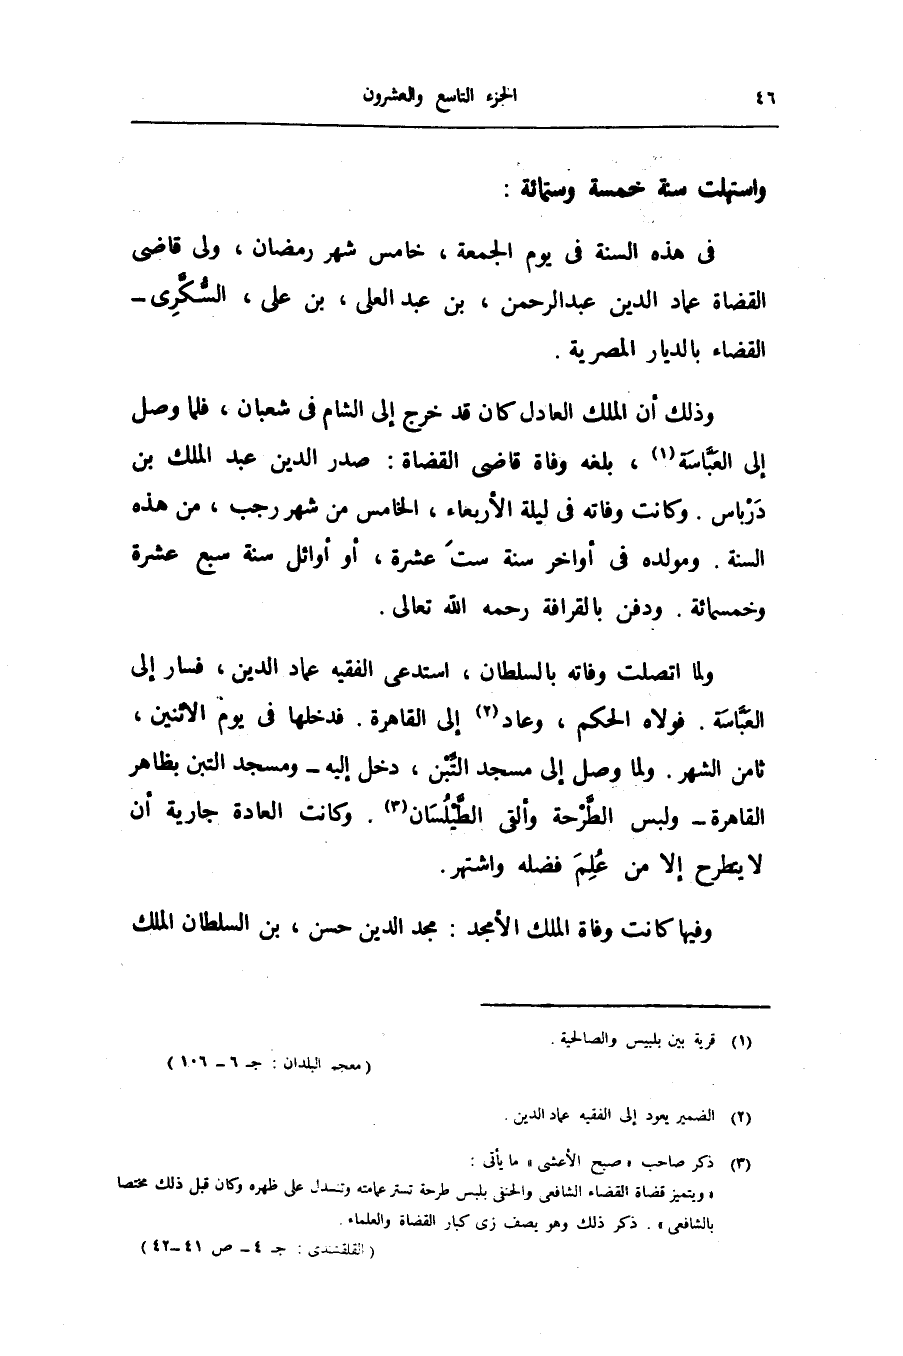 ٤٦
الجزء التاسع والعشرون
واستهلت سنة خمسة وستمائة :
فى هذه السنة فى يوم الجمعة ، خامس شهر رمضان ، ولى قاضى
القضاة عماد الدين عبدالرحمن ، بن عبد العلى ، بن على ، السُّكَّرِى –
القضاء بالديار المصرية .
وذلك أن الملك العادل كان قد خرج إلى الشام فى شعبان ، فلما وصل
إلى العَبَّاسَة(١) ، بلغه وفاة قاضى القضاة : صدر الدين عبد الملك بن
دَرْباس . وكانت وفاته فى ليلة الأربعاء ، الخامس من شهر رجب ، من هذه
السنة . ومولده فى أواخر سنة ستَ عشرة ، أو أوائل سنة سبع عشرة
وخمسمائة . ودفن بالقرافة رحمه الله تعالى .
ولما اتصلت وفاته بالسلطان ، استدعى الفقيه عماد الدين ، فسار إلى
العَبَّاسَة . فولاه الحكم ، وعاد(٢) إلى القاهرة . فدخلها فى يوم الاثنين ،
ثامن الشهر . ولما وصل إلى مسجد التِّبْن ، دخل إليه – ومسجد التبن بظاهر
القاهرة – ولبس الطَّرْحة وألقى الطَّيْلُسَان(٣) . وكانت العادة جارية أن
لا يتطرح إلا من عُلِمَ فضله واشتهر .
وفيها كانت وفاة الملك الأمجد : مجد الدين حسن ، بن السلطان الملك
(١) قرية بين بلبيس والصالحية .
( معجم البلدان : جـ ٦ – ١٠٦ )
(٢) الضمير يعود إلى الفقيه عماد الدين .
(٣) ذكر صاحب « صبح الأعشى » ما يأتى :
« ويتميز قضاة القضاء الشافعى والحنفى بلبس طرحة تستر عمامته وتنسدل على ظهره وكان قبل ذلك مختصا
بالشافعى » . ذكر ذلك وهو يصف زى كبار القضاة والعلماء .
( القلقشندى : جـ ٤ – ص ٤١–٤٢ )